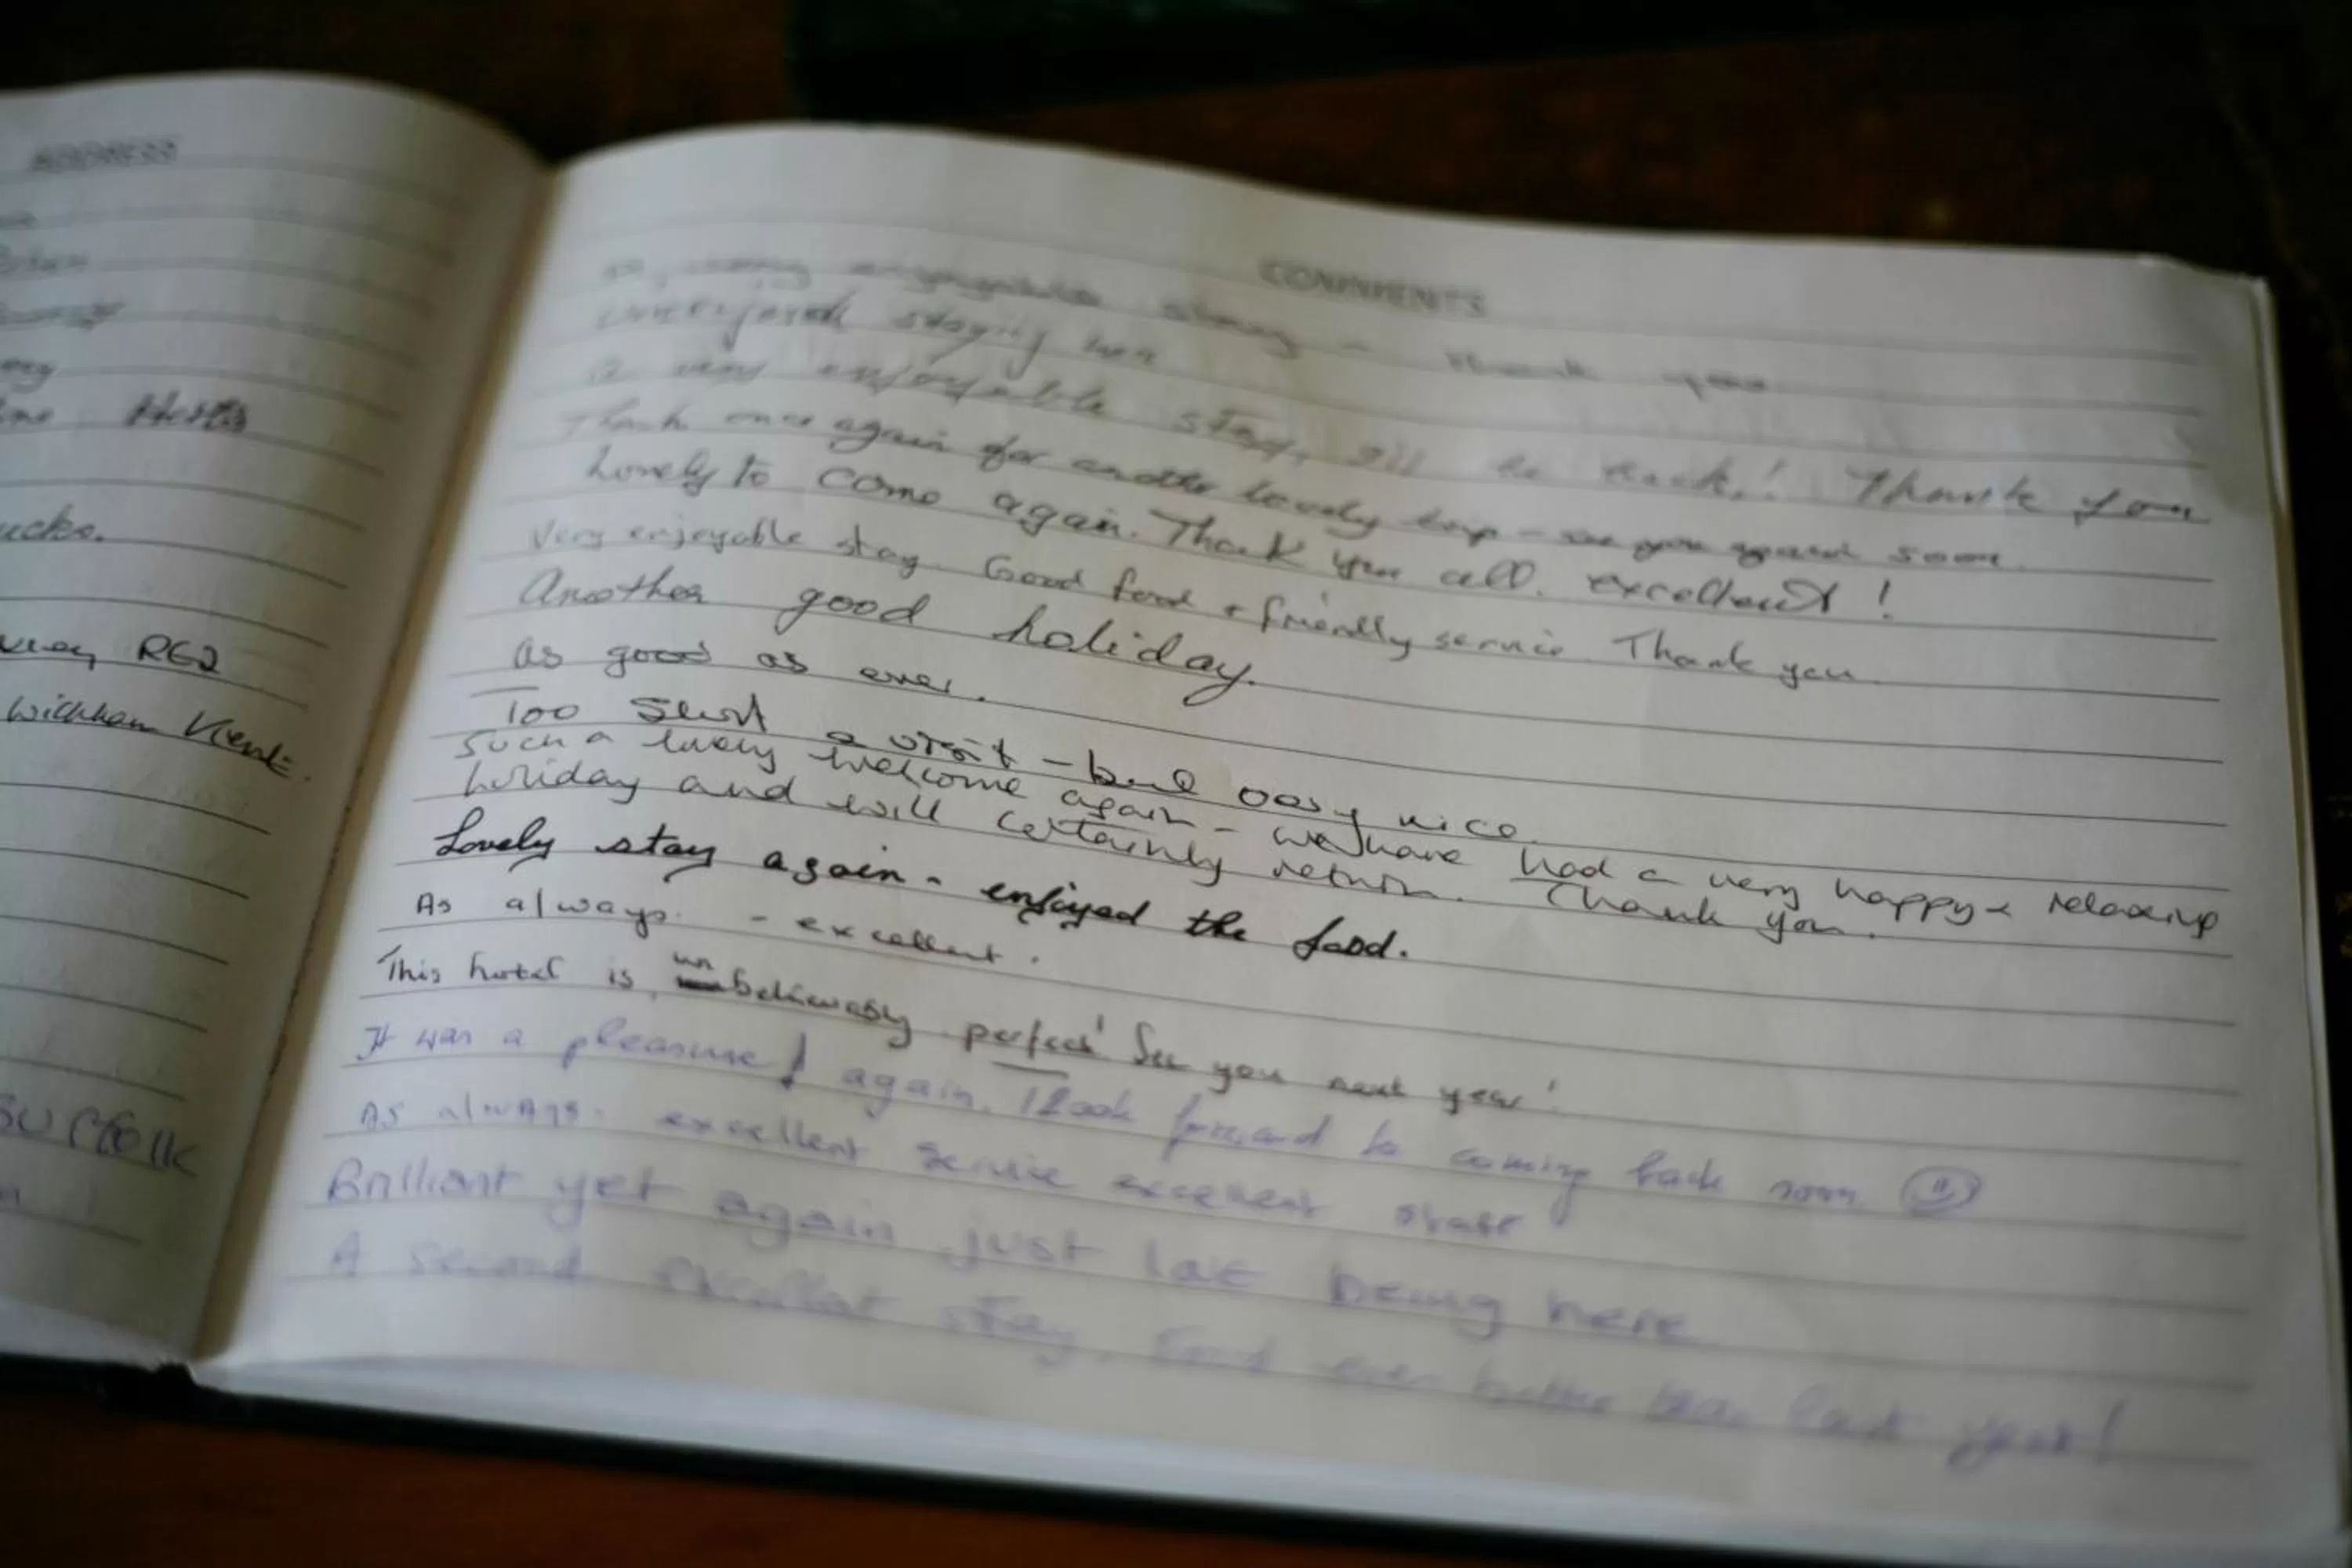 ADDRESS
Herts
ucks.
RG2
Witham Kent.
Suffolk
COMMENTS
A very enjoyable stay - thank you
enjoyed staying here
A very enjoyable stay, I'll be back! Thank you
Thank once again for another lovely trip - see you again soon
Lovely to come again. Thank you all. excellent!
Very enjoyable stay. Good food + friendly service. Thank you.
Another good holiday.
As good as ever.
Too short a visit - but very nice
Such a lovely welcome again - we have had a very happy & relaxing
holiday and will certainly return. Thank you.
Lovely stay again - enjoyed the food.
As always - excellent.
This hotel is unbelievably perfect! See you next year!
It was a pleasure! again. I look forward to coming back soon
As always. excellent service excellent staff
Brilliant yet again just love being here
A second excellent stay. Food even better than last year!